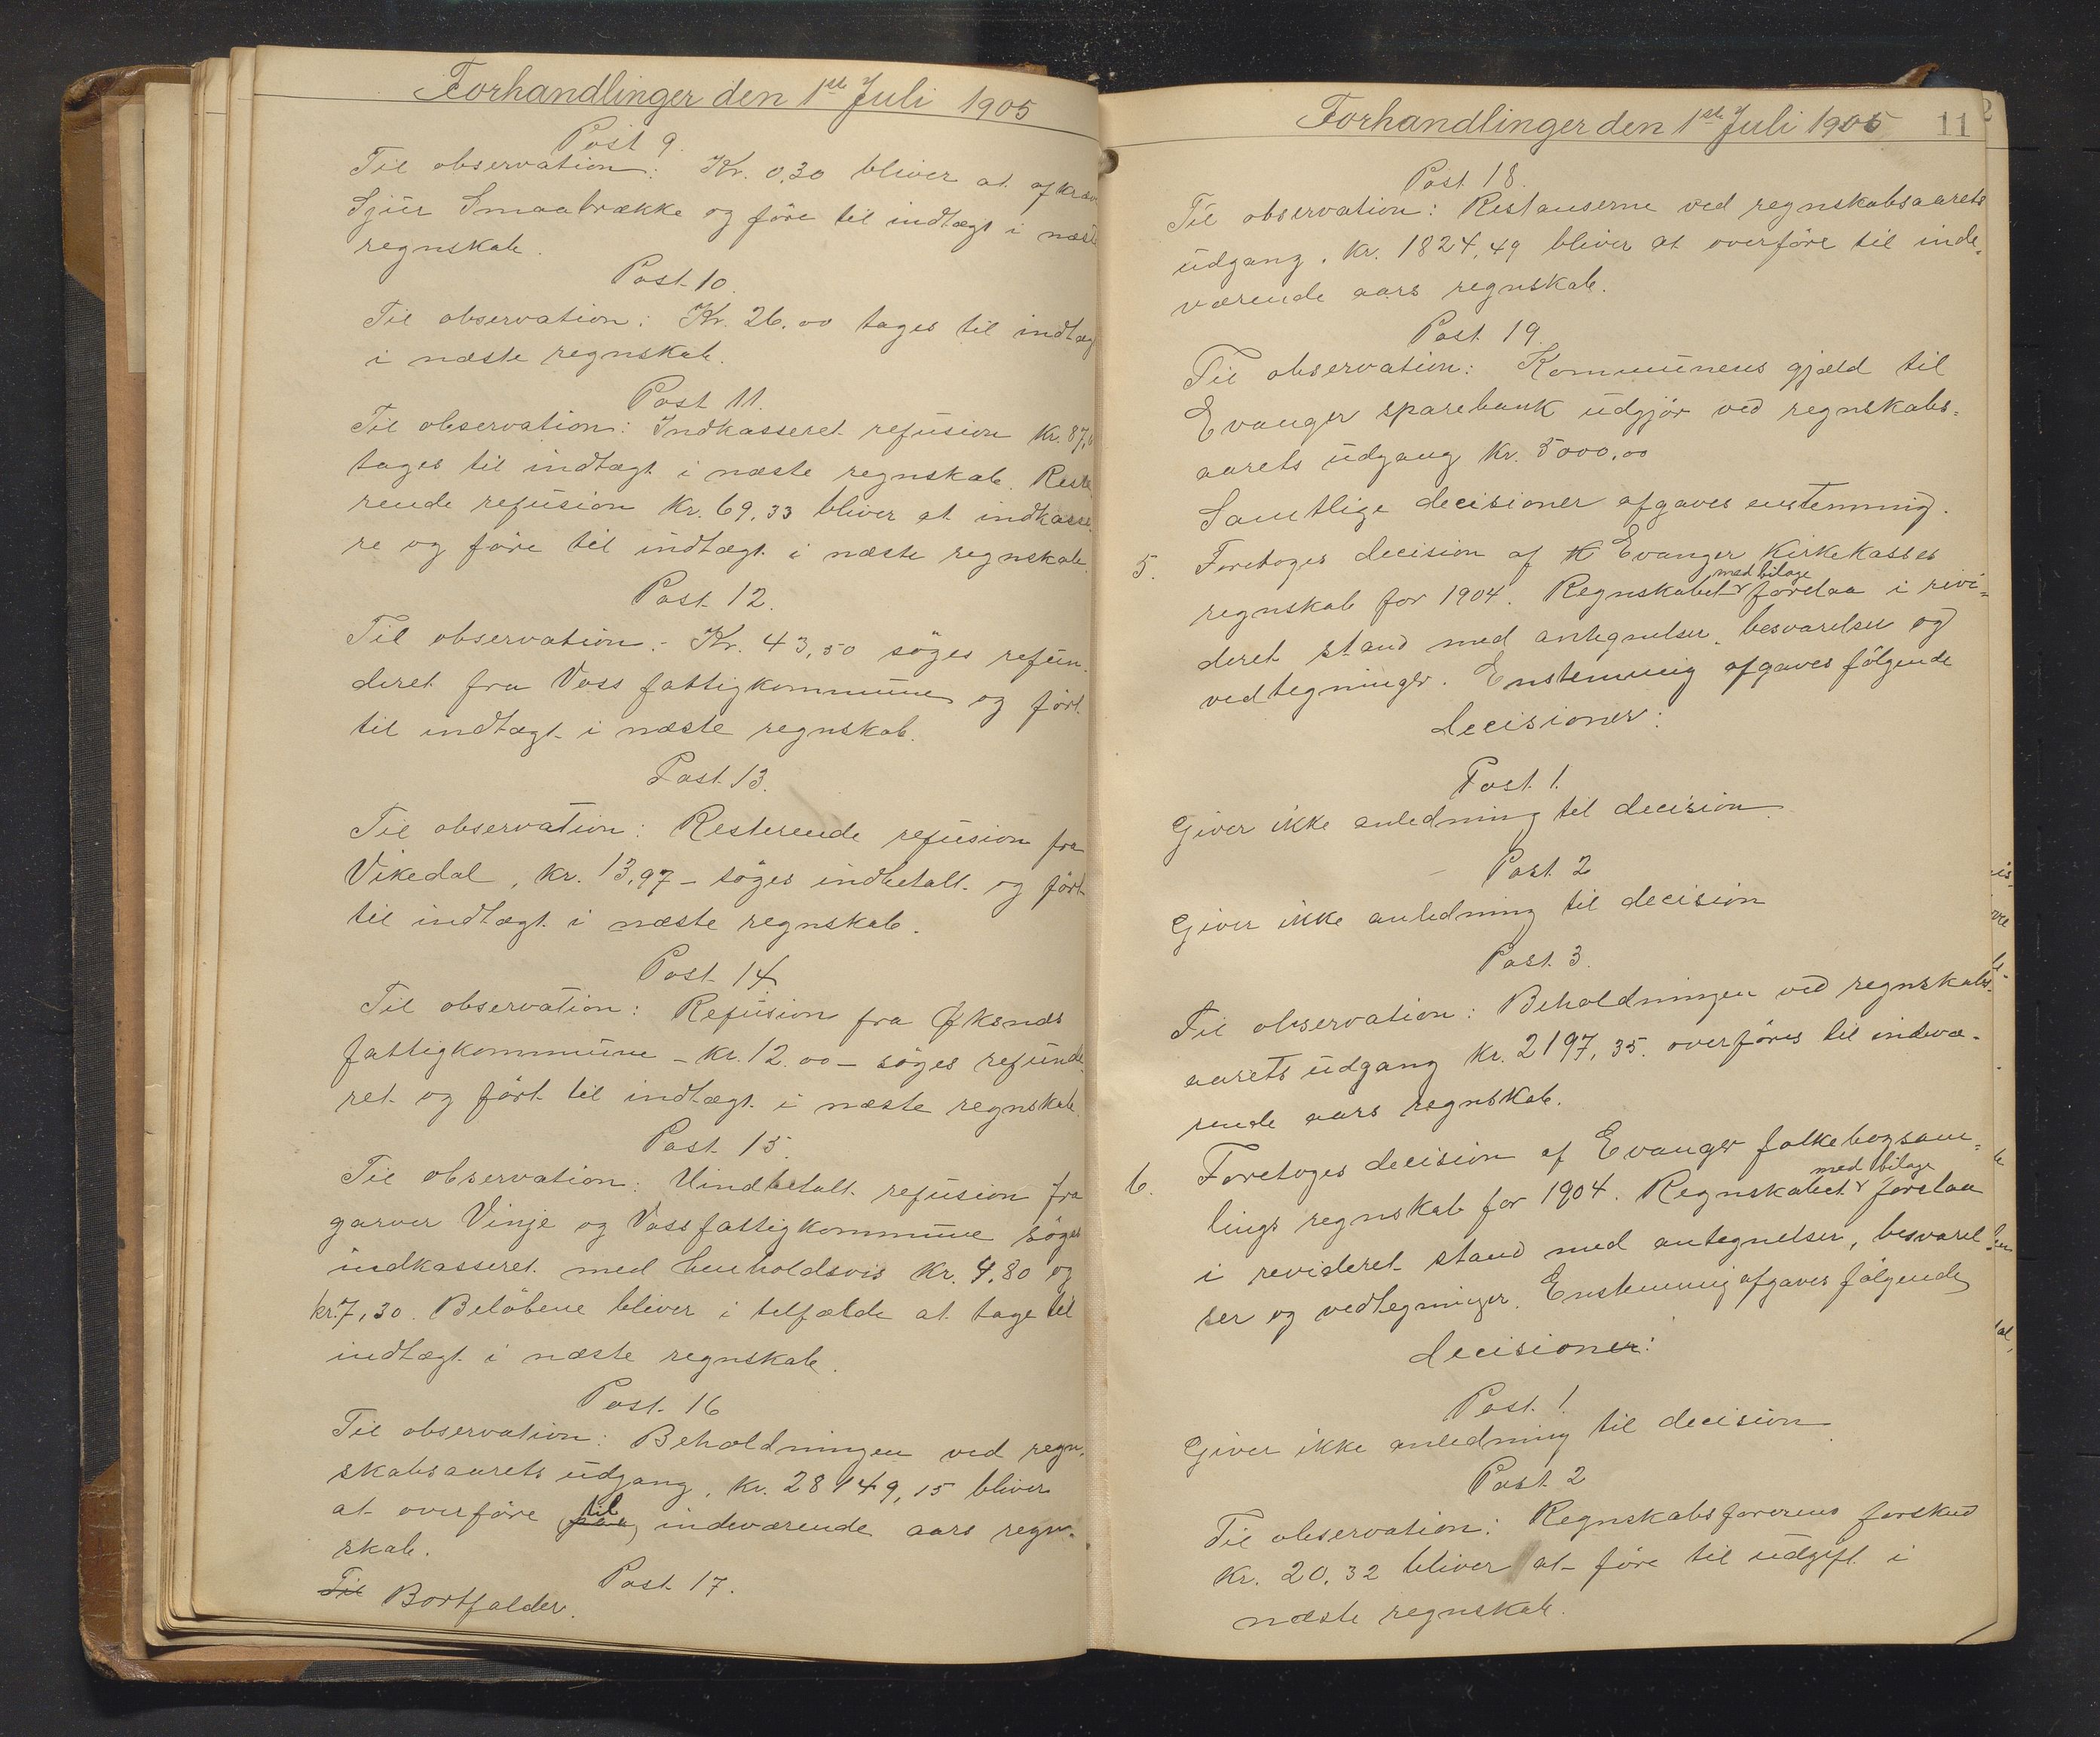 Forhandlinger den 1ste Juli 1905
Post 9.
Til observation: Kr. 0,30 bliver at afkræv
Sjur Smaabrække og føre til indtægt i næste
regnskab.
Post 10.
Til observation: Kr. 26.00 tages til indtæg
i næste regnskab.
Post 11.
Til observation: Indkasseret refusion kr. 87,
tages til indtægt i næste regnskab. Reste
rende refusion kr. 69,33 bliver at indkasse
re og føre til indtægt i næste regnskab.
Post 12.
Til observation: Kr. 43,50 søges refun-
deret fra Voss fattigkommune og ført
til indtægt i næste regnskab.
Post 13.
Til observation: Resterende refusion fra
Vikedal, kr. 13,97 – søges indbetalt og ført
til indtægt i næste regnskab.
Post 14
Til observation: Refusion fra Øksnds
fattigkommune – kr. 12.00 – søges refunde
ret og ført til indtægt i næste regnskab.
Post 15.
Til observation: Uindbetalt refusion fra
garver Vinje og Voss fattigkommune søges
indkasseret med henholdsvis kr. 4,80 og
kr. 7,30. Beløbene bliver i tilfælde at tage til
indtægt i næste regnskab.
Post 16
Til observation: Beholdningen ved regn-
skabsaarets udgang, kr. 28149,15 bliver
at overføre paa til indeværende aars regn-
skab.
Post 17.
Til Bortfalder.
Forhandlinger den 1ste Juli 1905 11
Post 18.
Til observation: Restanserne ved regnskabsaarets
udgang, kr. 1824,49 bliver at overføre til inde-
værende aars regnskab.
Post 19.
Til observation: Kommunens gjæld til
Evanger sparebank udgjør ved regnskabs-
aarets udgang kr. 5000,00
Samtlige decisioner afgaves enstemmig.
5. Foretoges decision af K Evanger Kirkekasses
regnskab for 1904. Regnskabet med bilage forelaa i rivi-
deret stand med antegnelser, besvarelser og
vedtegninger. Enstemmig afgaves følgende
decisioner:
Post 1.
Giver ikke anledning til decision.
Post 2
Giver ikke anledning til decision
Post 3.
Til observation: Beholdningen ved regnskabs-
aarets udgang kr. 2197,35. overføres til indevæ-
rende aars regnskab.
6. Foretoges decision af Evanger folkebogsam-
lings regnskab for 1904. Regnskabet med bilage forelaa
i revideret stand med antegnelser, besvarel
ser og vedtegninger. Enstemmig afgaves følgende
decisioner:
Post 1.
Giver ikke anledning til decision.
Post 2
Til observation: Regnskabsførerens forskud
kr. 20,32 bliver at føre til udgift i
næste regnskab.